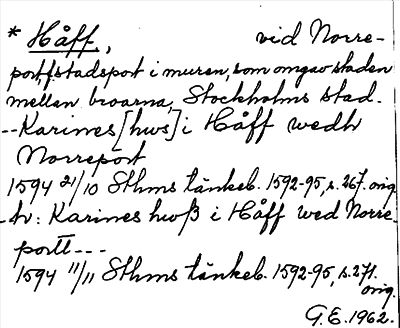 * Håff, vid Norre-
port, stadsport i muren, som omgav staden
mellan broarna, Stockholms stad.
--Karines [hws] i Håff wedh
Norreport
1594 21/10 Sthms tänkeb. 1592-95, s. 267. orig.
-Av: Karines hwß i Håff wed Norre-
portt---
1594 11/11 Sthms tänkeb. 1592-95, s. 271.
orig.
G.E. 1962.